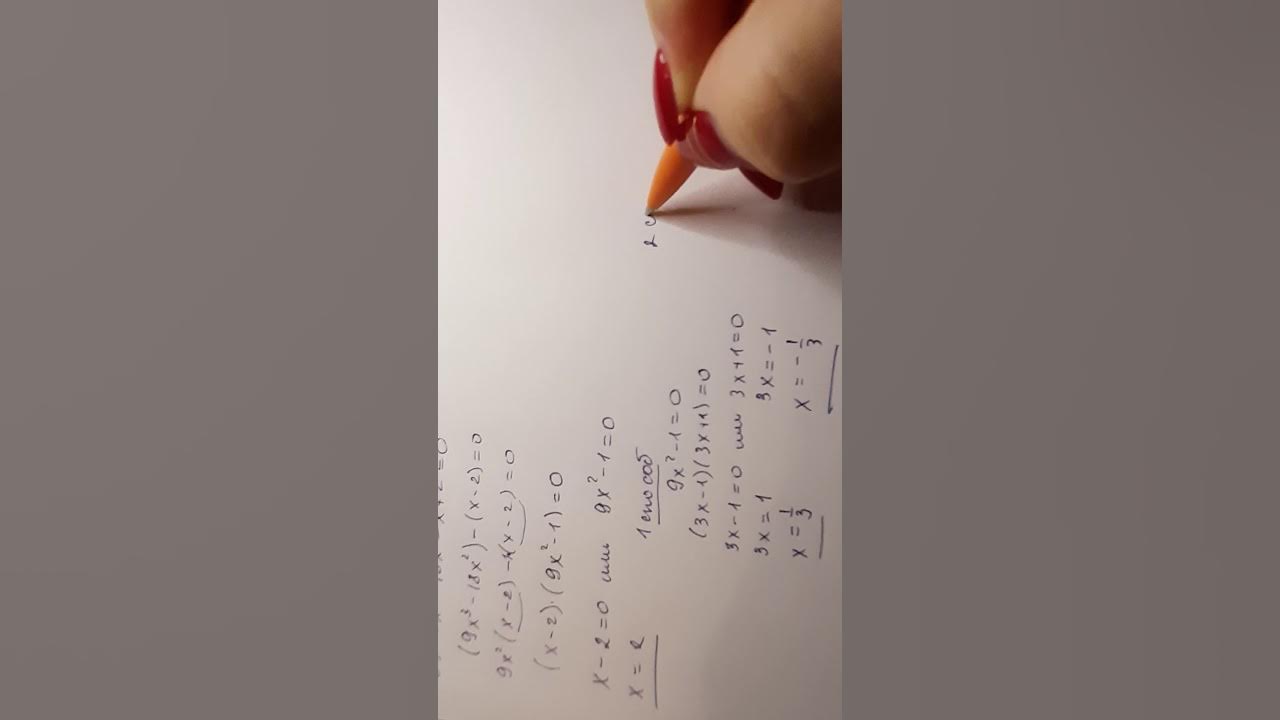 (9x³-18x²)-(x-2)=0
9x²(x-2)-1(x-2)=0
(x-2)·(9x²-1)=0
x-2=0 или 9x²-1=0
x=2
1 способ
9x²-1=0
(3x-1)(3x+1)=0
3x-1=0 или 3x+1=0
3x=1 3x=-1
x=1/3 x=-1/3
2 с